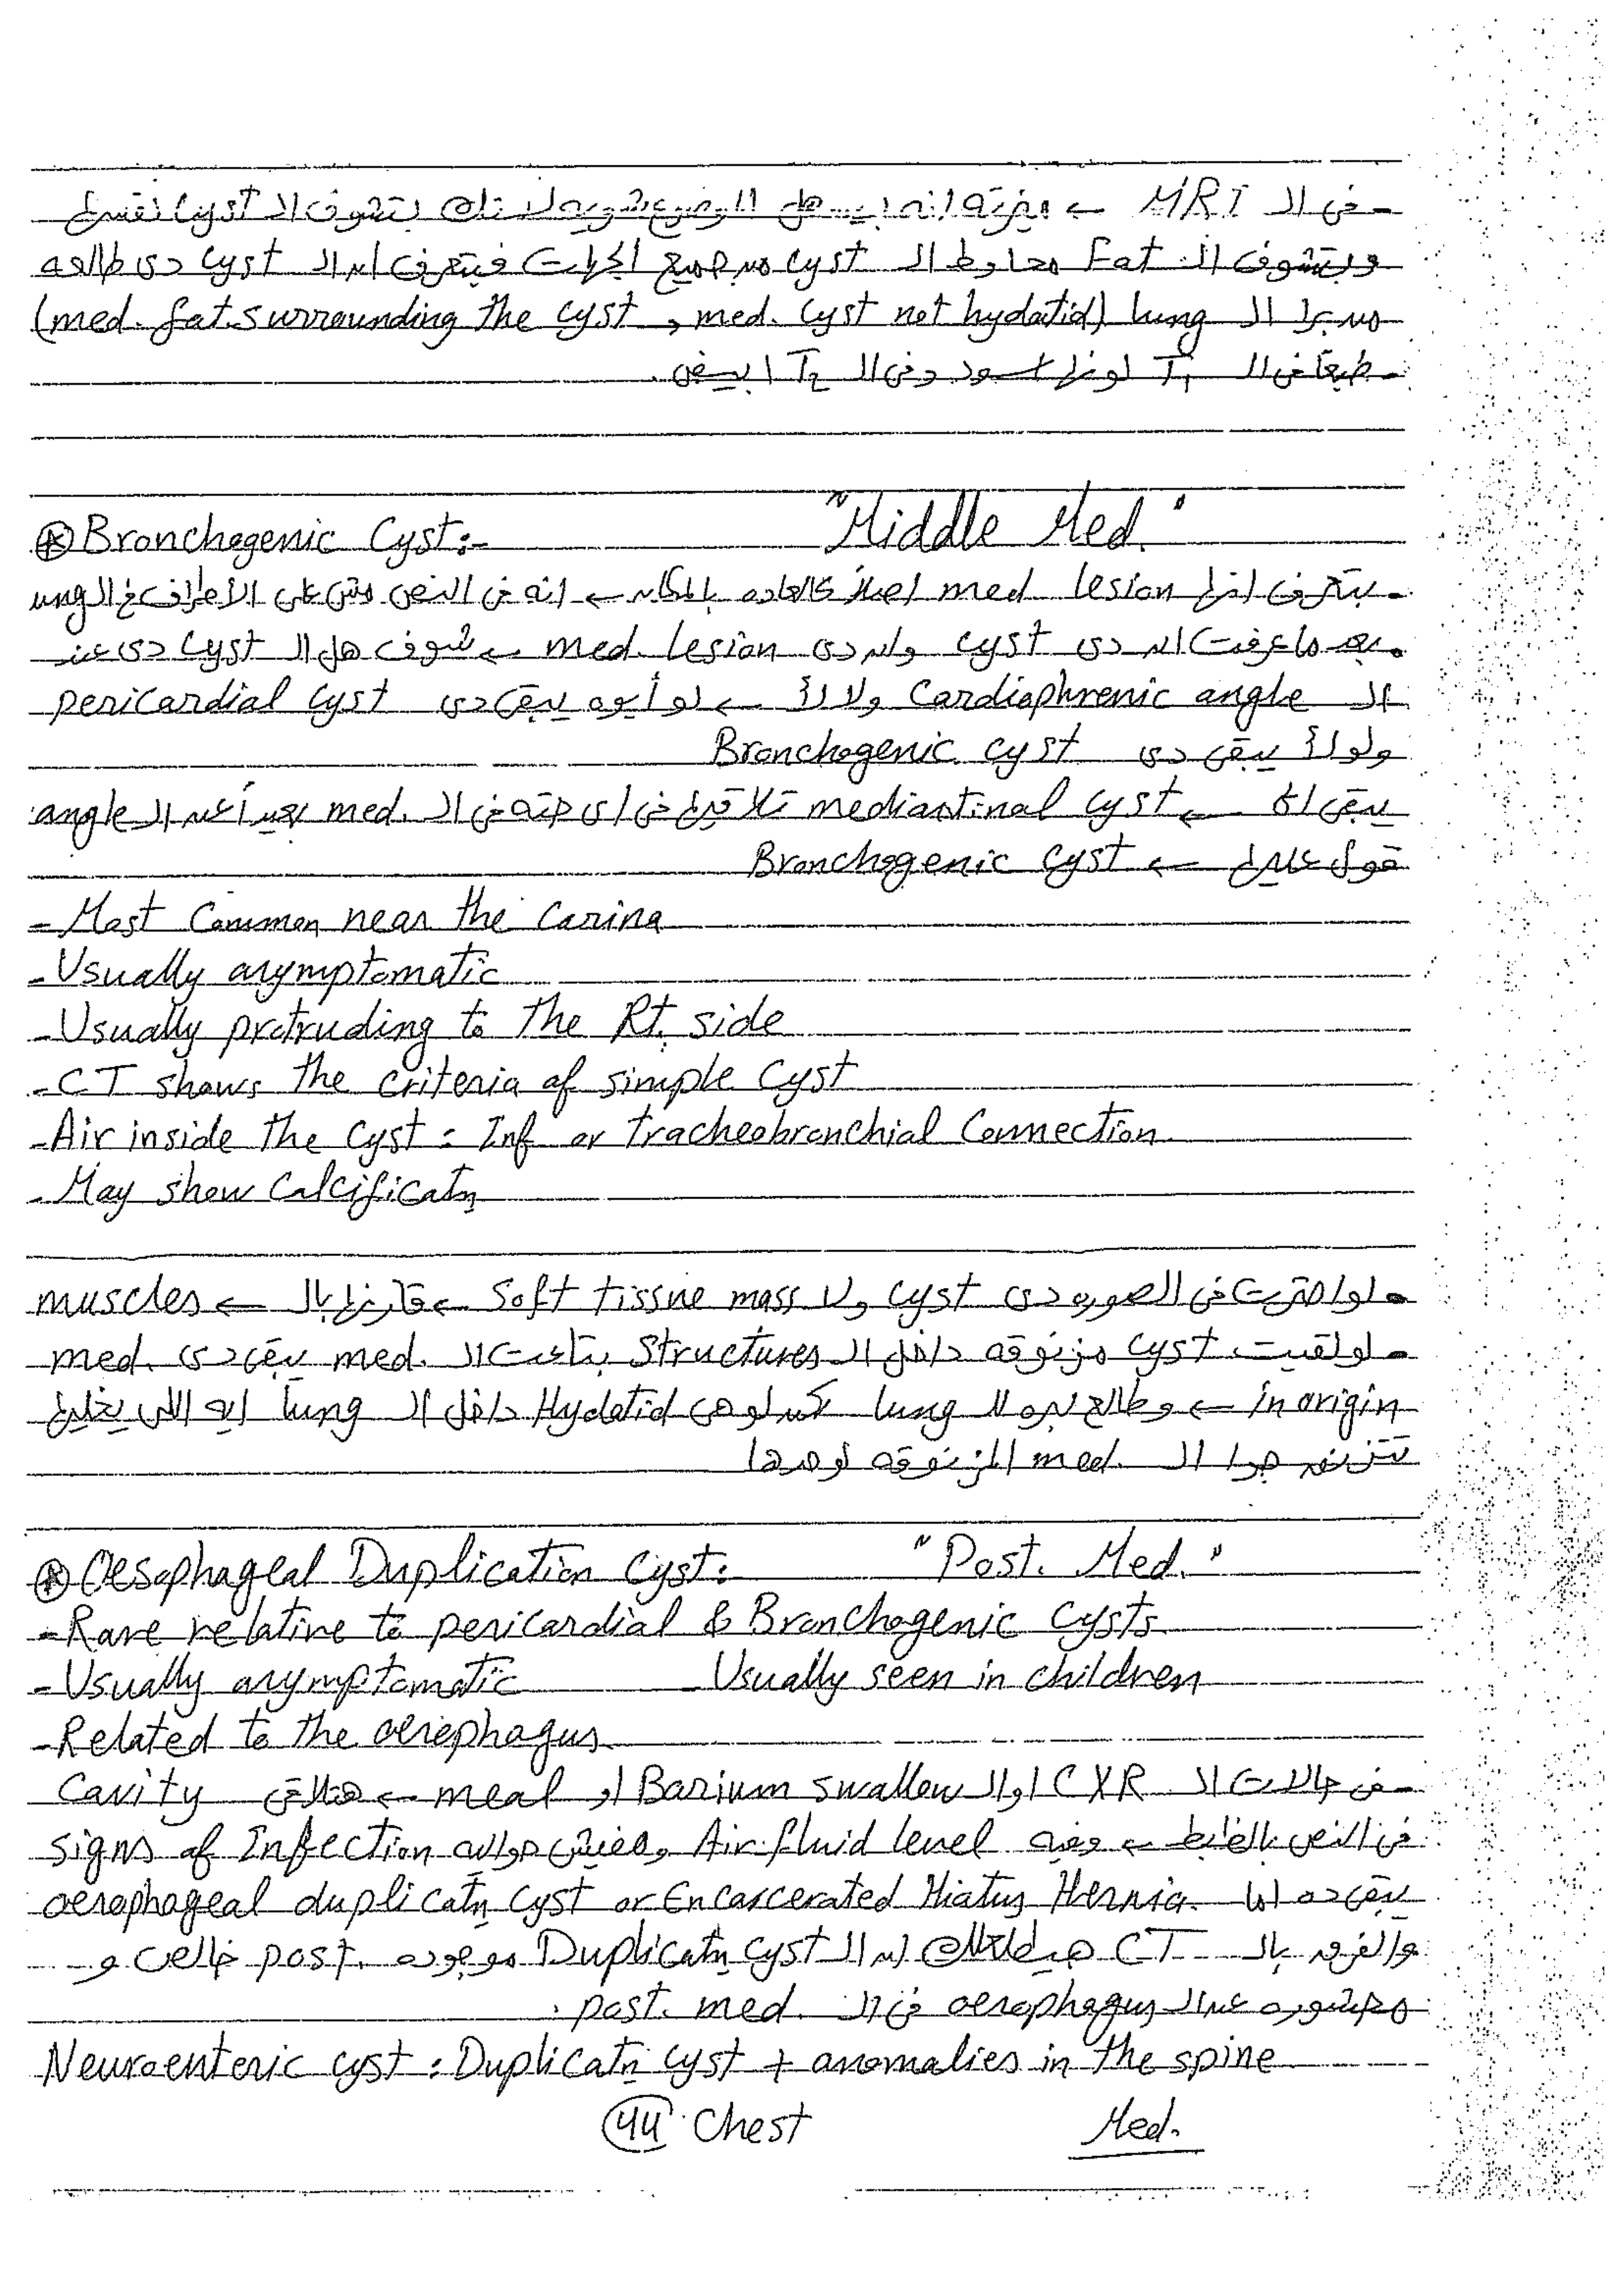 - فى الـ MRI ← ميزته انه بيسهل الموضوع شويه لانك بتشوف الـ cyst نفسها
وبتشوف الـ Fat محاوط الـ cyst من جميع الجهات فبتعرف ان الـ cyst دى طالعه
من برا الـ lung (med. fat surrounding the cyst, med. cyst not hydatid)
- طبعاً فى الـ T1 لونها اسود وفى الـ T2 ابيض.
⊛ Bronchogenic Cyst:- "Middle Med."
- بتعرف انها med lesion اصلاً كالعاده بالمكان ← انه فى النص مش على الأطراف فى الـ lung
• بعد ما عرفت ان دى cyst وان دى med. lesion ← شوف هل الـ cyst دى عند
الـ Cardiophrenic angle ولا لأ ← لو أيوه يبقى دى pericardial cyst
ولو لأ يبقى دى Bronchogenic cyst
يبقى اى mediastinal cyst ← تلاقيها فى اى حته فى الـ med. بعيداً عن الـ angle
قول عليها ← Bronchogenic cyst
- Most Common near the carina
- Usually asymptomatic
- Usually protruding to the Rt. side
- CT shows the criteria of simple cyst
- Air inside the cyst = Inf or tracheobronchial Connection
- May show Calcificatn
• لو احترت فى الصوره دى cyst ولا soft tissue mass ← قارنها بالـ muscles ←
• لو لقيت cyst مزنوقه داخل الـ structures بتاعت الـ med. يبقى دى med.
in origin ← وطالع بره للـ lung لكن لو هى Hydatid داخل الـ lung ايه اللى يخليها
تتزنق جوا الـ med. المزنوقه لوحدها
⊛ Oesophageal Duplication Cyst: "Post. Med."
- Rare relative to pericardial & Bronchogenic Cysts
- Usually asymptomatic - Usually seen in children
- Related to the oesophagus
- فى حالات الـ CXR او الـ Barium swallow او meal ← هتلاقى Cavity
فى النص بالظبط ← وفيه Air fluid level ومفيش حواليه signs of Infection
يبقى ده اما oesophageal duplicatn cyst or Encarcerated Hiatus Hernia.
والفرق بالـ CT ان الـ Duplicatn cyst موجوده post. خالص و
محشوره عند الـ oesophagus فى الـ post. med.
Neuroenteric cyst: Duplicatn cyst + anomalies in the spine
44 Chest Med.